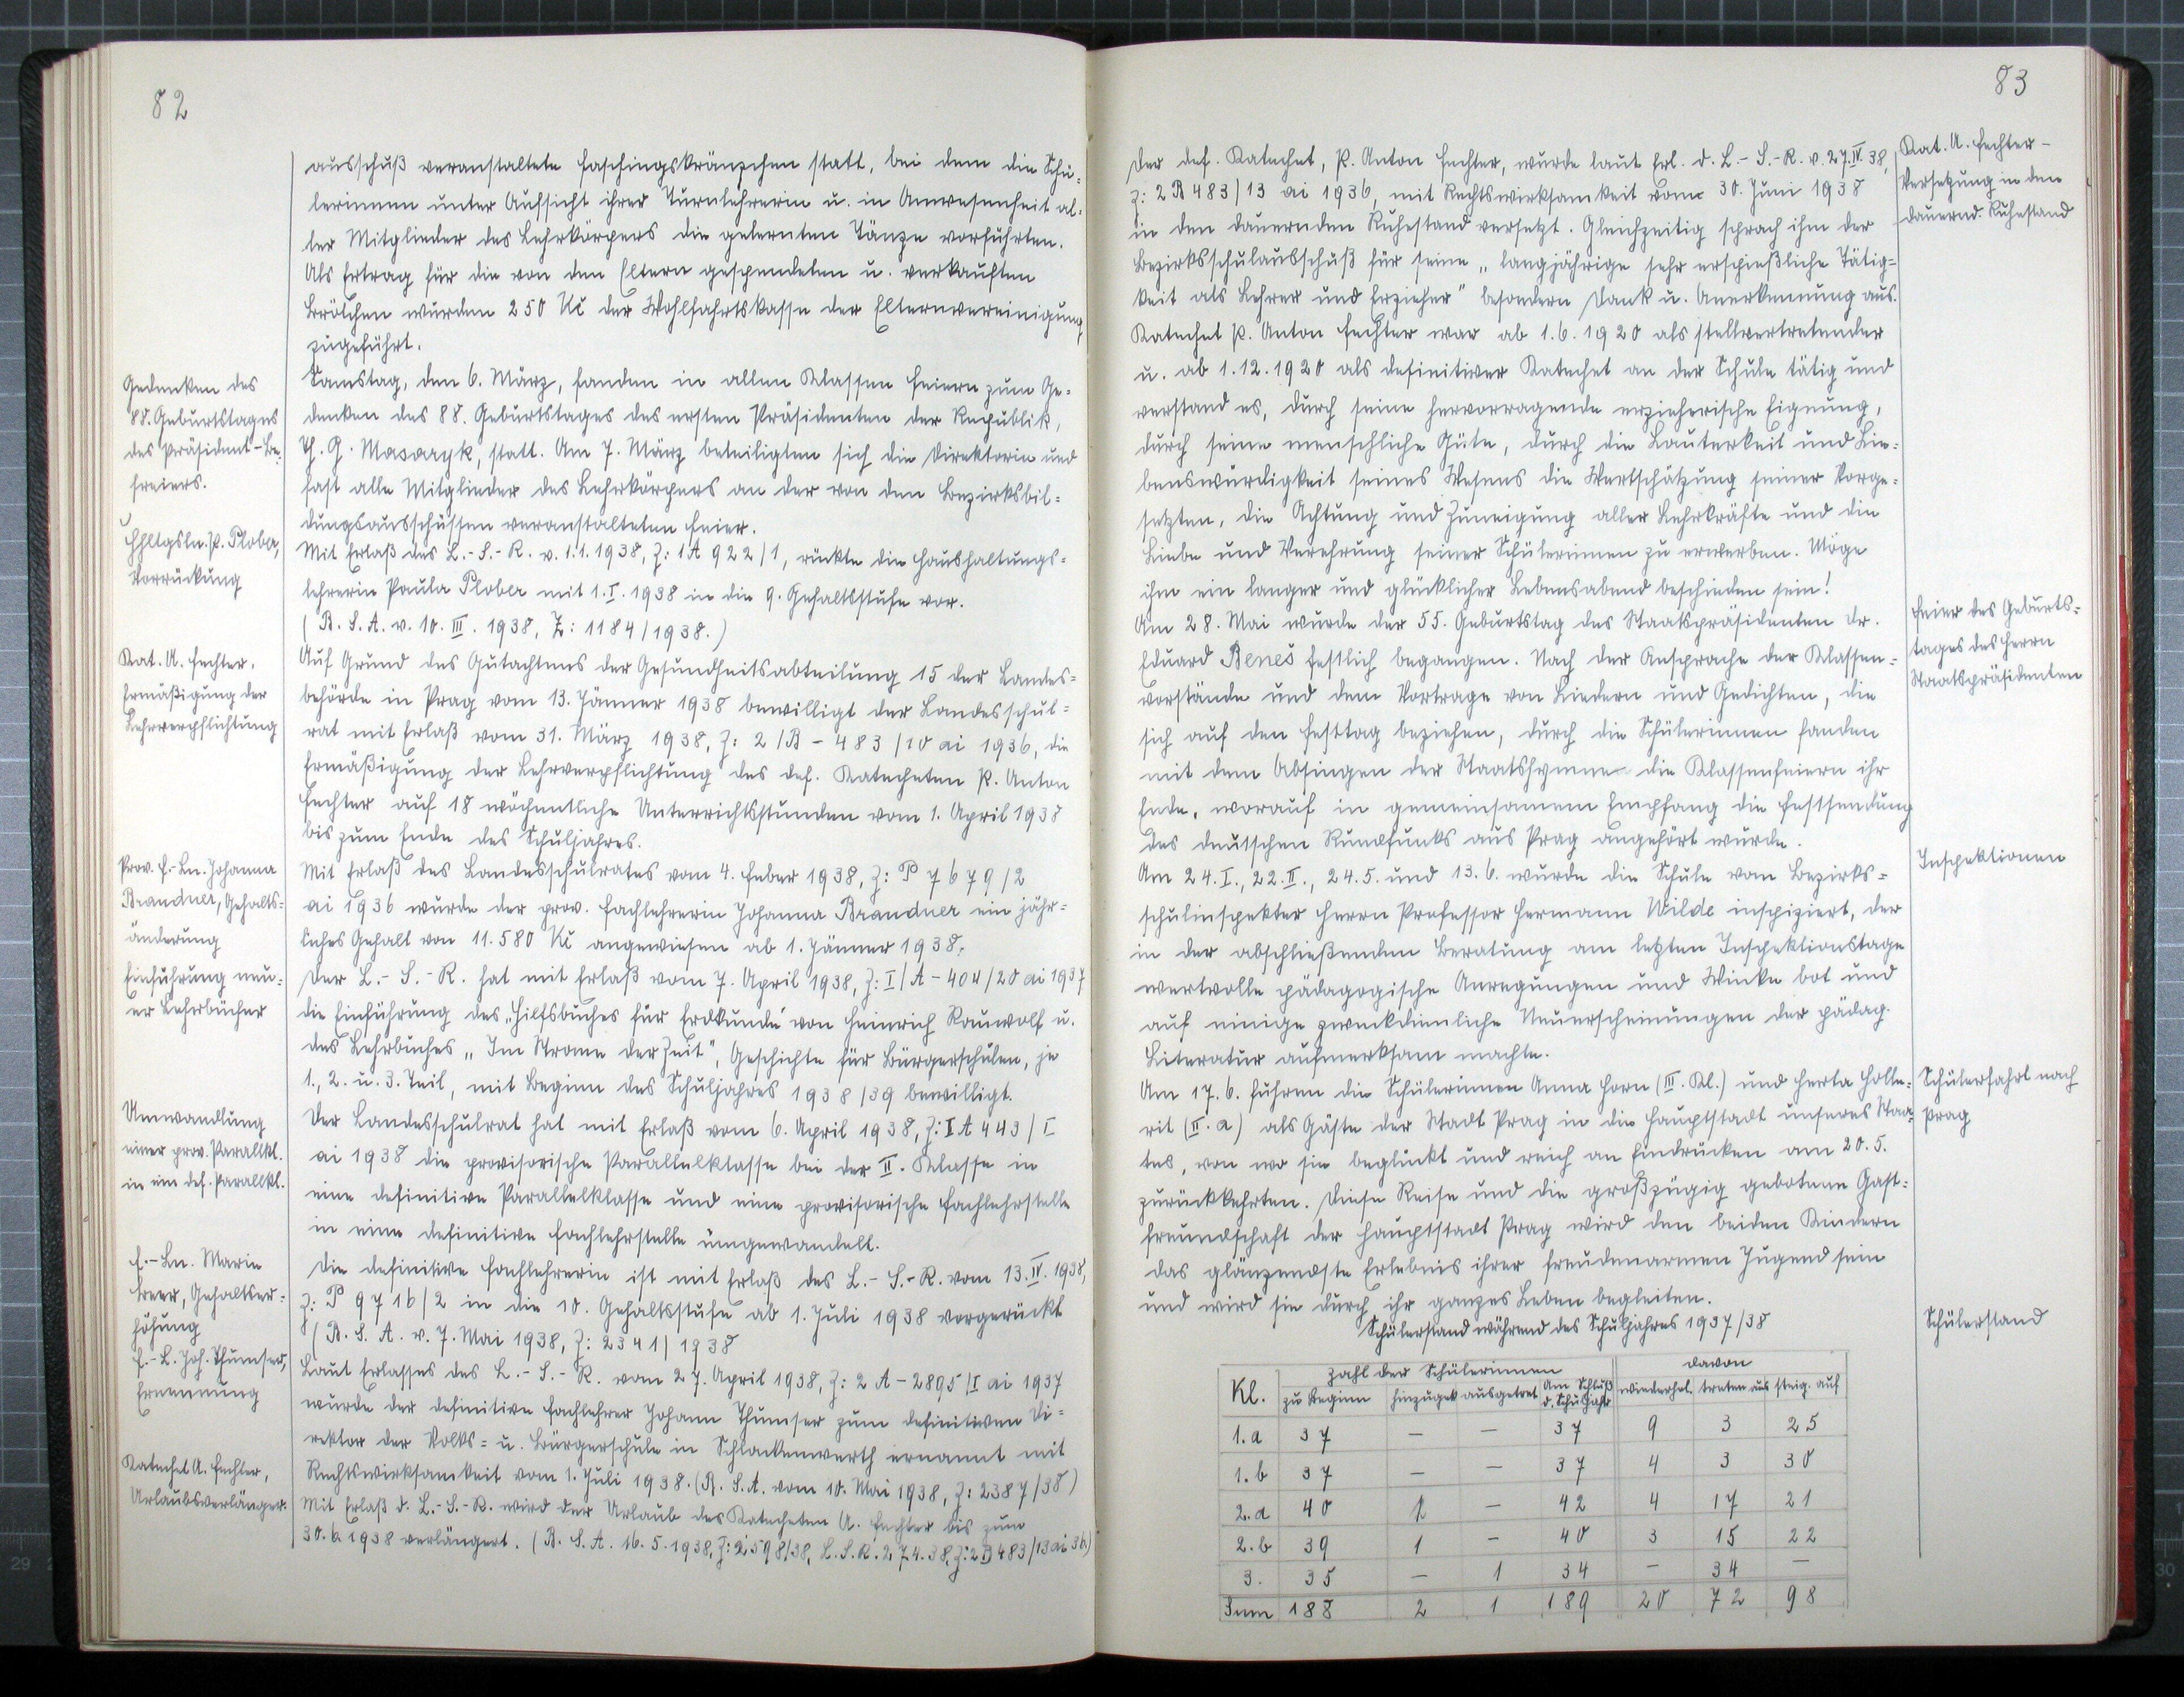 82
ausschuß veranstaltete Faschingskränzchen statt, bei dem die Schü=
lerinnen unter Aufsicht ihrer Turnlehrerin u. in Anwesenheit al=
ler Mitglieder des Lehrkörpers die gelernten Tänze vorführten.
Als Ertrag für die von den Eltern gespendeten u. verkauften
Brötchen wurden 250 Kč der Wohlfahrtskasse der Elternvereinigung
zugeführt.
Gedenken des
88. Geburtstages
des Präsident-Be=
freiers.
Samstag, den 6. März, fanden in allen Klassen Feiern zum Ge=
denken des 88. Geburtstages des ersten Präsidenten der Republik,
Th. G. Masaryk, statt. Am 7. März beteiligten sich die Direktorin und
fast alle Mitglieder des Lehrkörpers an der von den Bezirksbil=
dungsausschüssen veranstalteten Feier.
Hhltgsln. P. Plober,
Vorrückung
Mit Erlaß des L.-S.-R. v. 1.1.1938, Z: 1A 922/1, rückte die Haushaltungs=
lehrerin Paula Plober mit 1.I.1938 in die 9. Gehaltsstufe vor.
(B.S.A. v. 10.III.1938, Z: 1184/1938.)
Kat. A. Fechter,
Ermäßigung der
Lehrverpflichtung
Auf Grund des Gutachtens der Gesundheitsabteilung 15 der Landes=
behörde in Prag vom 13. Jänner 1938 bewilligt der Landesschul=
rat mit Erlaß vom 31. März 1938, Z: 2/B - 483/10 ai 1936, die
Ermäßigung der Lehrverpflichtung des def. Katecheten P. Anton
Fechter auf 18 wöchentliche Unterrichtsstunden vom 1. April 1938
bis zum Ende des Schuljahres.
Prov. F.-Ln. Johanna
Brandner, Gehalts=
änderung
Mit Erlaß des Landesschulrates vom 4. Feber 1938, Z: P 7679/2
ai 1936 wurde der prov. Fachlehrerin Johanna Brandner ein jähr=
liches Gehalt von 11.580 Kč angewiesen ab 1. Jänner 1938.
Einführung neu=
er Lehrbücher
Der L.-S.-R. hat mit Erlaß vom 7. April 1938, Z: I/A - 404/20 ai 1937
die Einführung des „Hilfsbuches für Erdkunde" von Heinrich Rauwolf u.
des Lehrbuches „Im Strome der Zeit", Geschichte für Bürgerschulen, je
1., 2. u. 3. Teil, mit Beginn des Schuljahres 1938/39 bewilligt.
Umwandlung
einer prov. Parallkl.
in ein def. Parallkl.
Der Landesschulrat hat mit Erlaß vom 6. April 1938, Z: I A 443/I
ai 1938 die provisorische Parallelklasse bei der II. Klasse in
eine definitive Parallelklasse und eine provisorische Fachlehrstelle
in eine definitive Fachlehrstelle umgewandelt.
F.-Ln. Marie
Beer, Gehaltser=
höhung
Die definitive Fachlehrerin ist mit Erlaß des L.-S.-R. vom 13.IV.1938,
Z: P 9716/2 in die 10. Gehaltsstufe ab 1. Juli 1938 vorgerückt
(B.S.A. v. 7. Mai 1938, Z: 2341/1938
F.-L. Joh. Thumser,
Ernennung
Laut Erlasses des L.-S.-R. vom 27. April 1938, Z: 2 A - 2895/I ai 1937
wurde der definitive Fachlehrer Johann Thumser zum definitiven Di=
rektor der Volks= u. Bürgerschule in Schlackenwerth ernannt mit
Rechtswirksamkeit vom 1. Juli 1938. (B.S.A. vom 10. Mai 1938, Z: 2387/38)
Katechet A. Fechter,
Urlaubsverlänger.
Mit Erlaß d. L.-S.-R. wird der Urlaub des Katecheten A. Fechter bis zum
30.6.1938 verlängert. (B.S.A. 16.5.1938, Z: 2598/38, L.S.R. 27.4.38, Z: 2B 483/13 ai 36)
83
Kat. A. Fechter -
Versetzung in den
dauernd. Ruhestand
Der def. Katechet, P. Anton Fechter, wurde laut Erl. d. L.-S.-R. v. 27.IV.38,
Z: 2 B 483/13 ai 1936, mit Rechtswirksamkeit vom 30. Juni 1938
in den dauernden Ruhestand versetzt. Gleichzeitig sprach ihm der
Bezirksschulausschuß für seine „langjährige sehr ersprießliche Tätig=
keit als Lehrer und Erzieher" besondern Dank u. Anerkennung aus.
Katechet P. Anton Fechter war ab 1.6.1920 als stellvertretender
u. ab 1.12.1920 als definitiver Katechet an der Schule tätig und
verstand es, durch seine hervorragende erzieherische Eignung,
durch seine menschliche Güte, durch die Lauterkeit und Lie=
benswürdigkeit seines Wesens die Wertschätzung seiner Vorge=
setzten, die Achtung und Zuneigung aller Lehrkräfte und die
Liebe und Verehrung seiner Schülerinnen zu erwerben. Möge
ihm ein langer und glücklicher Lebensabend beschieden sein!
Feier des Geburts=
tages des Herrn
Staatspräsidenten
Am 28. Mai wurde der 55. Geburtstag des Staatspräsidenten Dr.
Eduard Beneš festlich begangen. Nach der Ansprache der Klassen=
vorstände und dem Vortrage von Liedern und Gedichten, die
sich auf den Festtag beziehen, durch die Schülerinnen fanden
mit dem Absingen der Staatshymne die Klassenfeiern ihr
Ende, worauf in gemeinsamem Empfang die Festsendung
des deutschen Rundfunks aus Prag angehört wurde.
Inspektionen
Am 24.I., 22.II., 24.5. und 13.6. wurde die Schule vom Bezirks=
schulinspektor Herrn Professor Hermann Wilde inspiziert, der
in der abschließenden Beratung am letzten Inspektionstage
wertvolle pädagogische Anregungen und Winke bot und
auf einige zweckdienliche Neuerscheinungen der pädag.
Literatur aufmerksam machte.
Schülerfahrt nach
Prag
Am 17.6. fuhren die Schülerinnen Anna Horn (III. Kl.) und Herta Holle=
rit (II. a) als Gäste der Stadt Prag in die Hauptstadt unseres Staa=
tes, von wo sie beglückt und reich an Eindrücken am 20.5.
zurückkehrten. Diese Reise und die großzügig gebotene Gast=
freundschaft der Hauptstadt Prag wird den beiden Kindern
das glänzendste Erlebnis ihrer freudenarmen Jugend sein
und wird sie durch ihr ganzes Leben begleiten.
Schülerstand
Schülerstand während des Schuljahres 1937/38
Kl. Zahl der Schülerinnen davon
zu Beginn hinzugek ausgetret Am Schluß d. Schuljahr wiederhol. treten aus steig. auf
1.a 37 — — 37 9 3 25
1.b 37 — — 37 4 3 30
2.a 40 — 42 4 17 21
2.b 39 1 — 40 3 15 22
3. 35 — 1 34 — 34 —
Sum 188 2 1 189 20 72 98
29
30